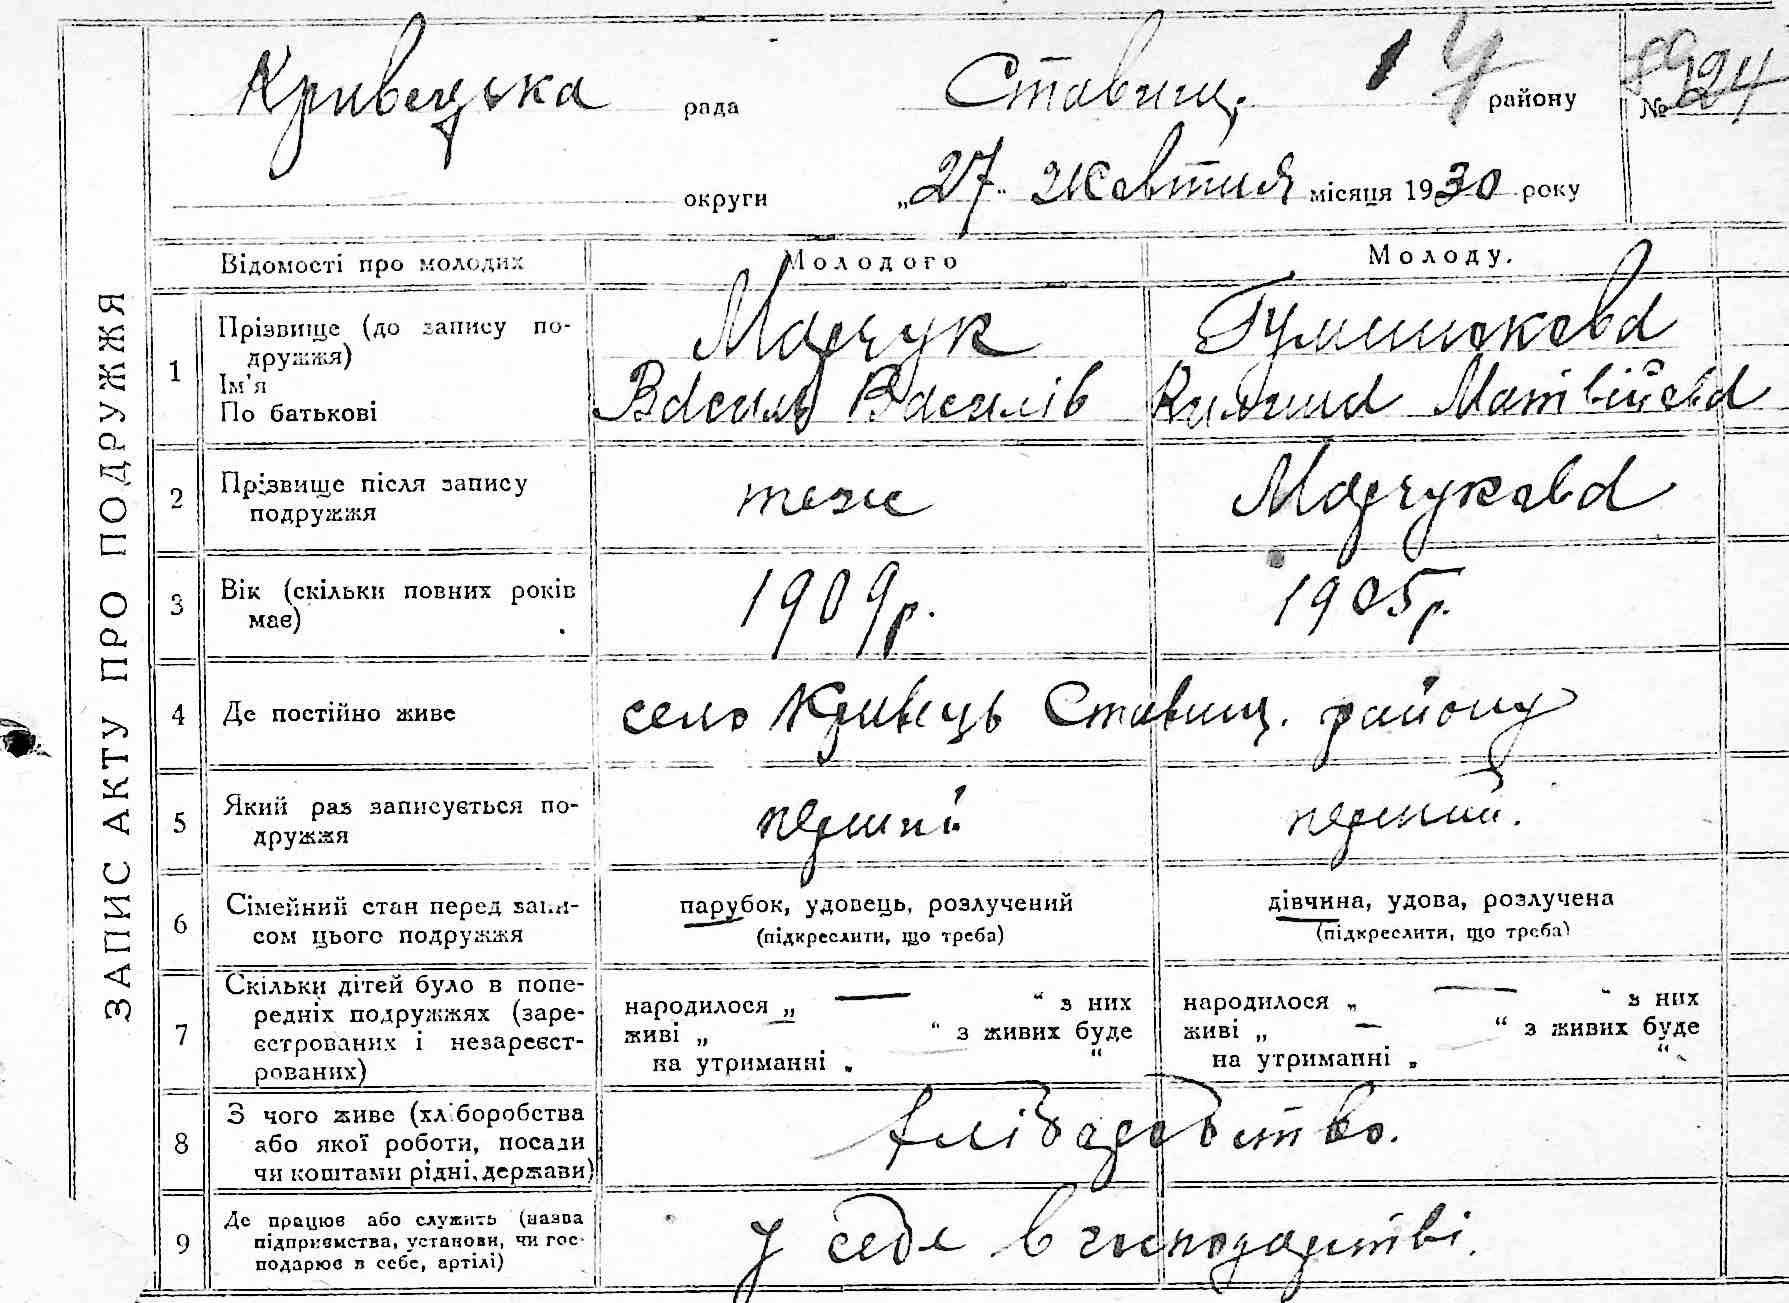 ЗАПИС АКТУ ПРО ПОДРУЖЖЯ
Кривецька рада Ставищ. району № 24
округи „27" жовтня місяця 1930 року
Відомості про молодих Молодого Молоду.
1 Прізвище (до запису по-
дружжя)
Ім'я
По батькові
Марчук
Василь Василів
Матвійова
2 Прізвище після запису
подружжя
теж Марчукова
3 Вік (скільки повних років
має)
1909р. 1905р.
4 Де постійно живе село Кривець Ставищ. району
5 Який раз записується по-
дружжя
перший перший.
6 Сімейний стан перед запи-
сом цього подружжя
парубок, удовець, розлучений
(підкреслити, що треба)
дівчина, удова, розлучена
(підкреслити, що треба)
7 Скільки дітей було в попе-
редніх подружжях (заре-
єстрованих і незареєст-
рованих)
народилося „ — " з них
живі „ — " з живих буде
на утриманні „ "
народилося „ — " з них
живі „ — " з живих буде
на утриманні „ "
8 З чого живе (хліборобства
або якої роботи, посади
чи коштами рідні, держави)
хліборобство.
9 Де працює або служить (назва
підприємства, установи, чи гос-
подарює в себе, артілі)
у себе в господарстві.